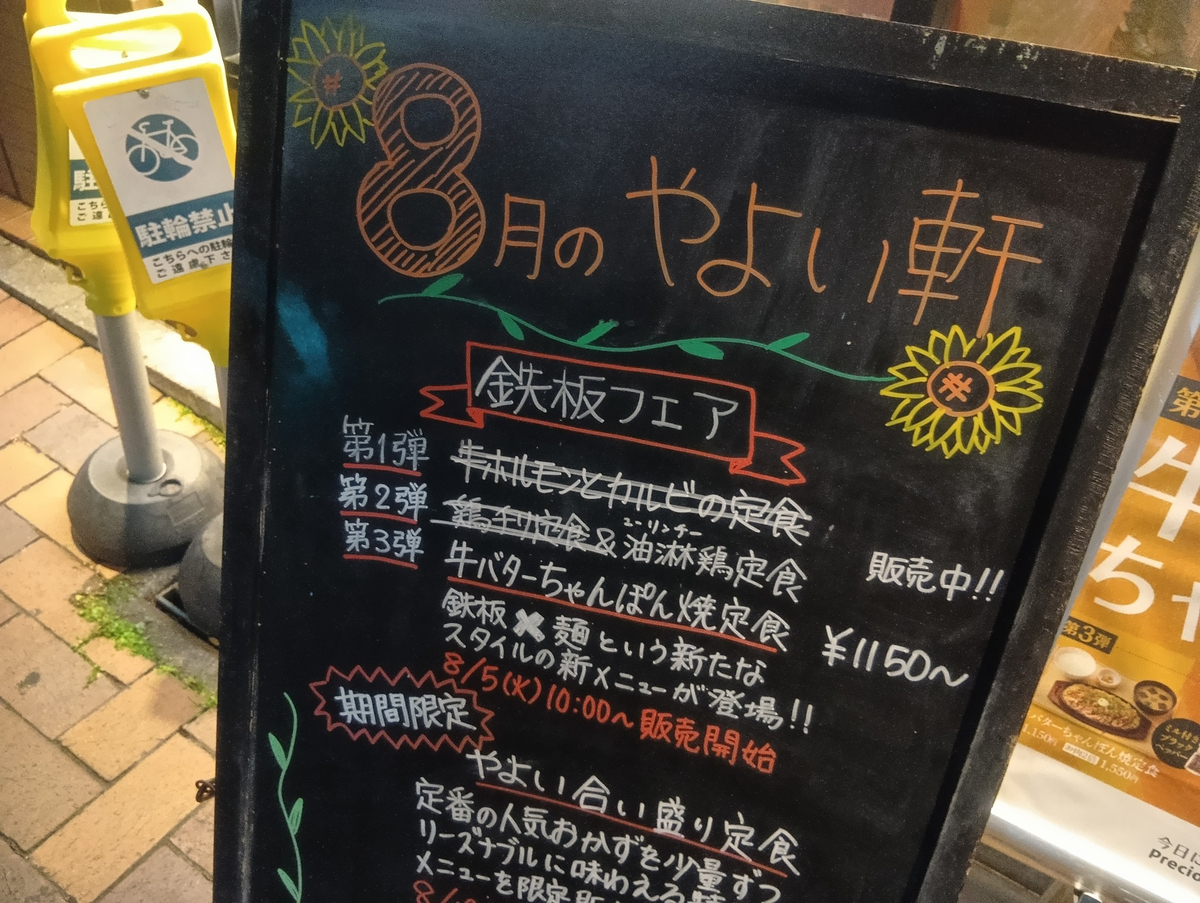 8月のやよい軒
鉄板フェア
第1弾 牛ホルモンとカルビの定食
第2弾 鶏チリ定食&油淋鶏定食 販売中!!
ユーリンチー
第3弾 牛バターちゃんぽん焼定食 ¥1150～
鉄板×麺という新たな
スタイルの新メニューが登場!!
8/5(火)10:00～販売開始
期間限定
やよい合い盛り定食
定番の人気おかずを少量ずつ
リーズナブルに味わえる
メニューを限定
駐輪禁止
こちらへの駐輪
ご遠慮下さ
駐
こち
ご遠
第
牛
ちゃ
第3弾
バターちゃんぽん焼定食
1,150円
1,550円
今日に
Precio